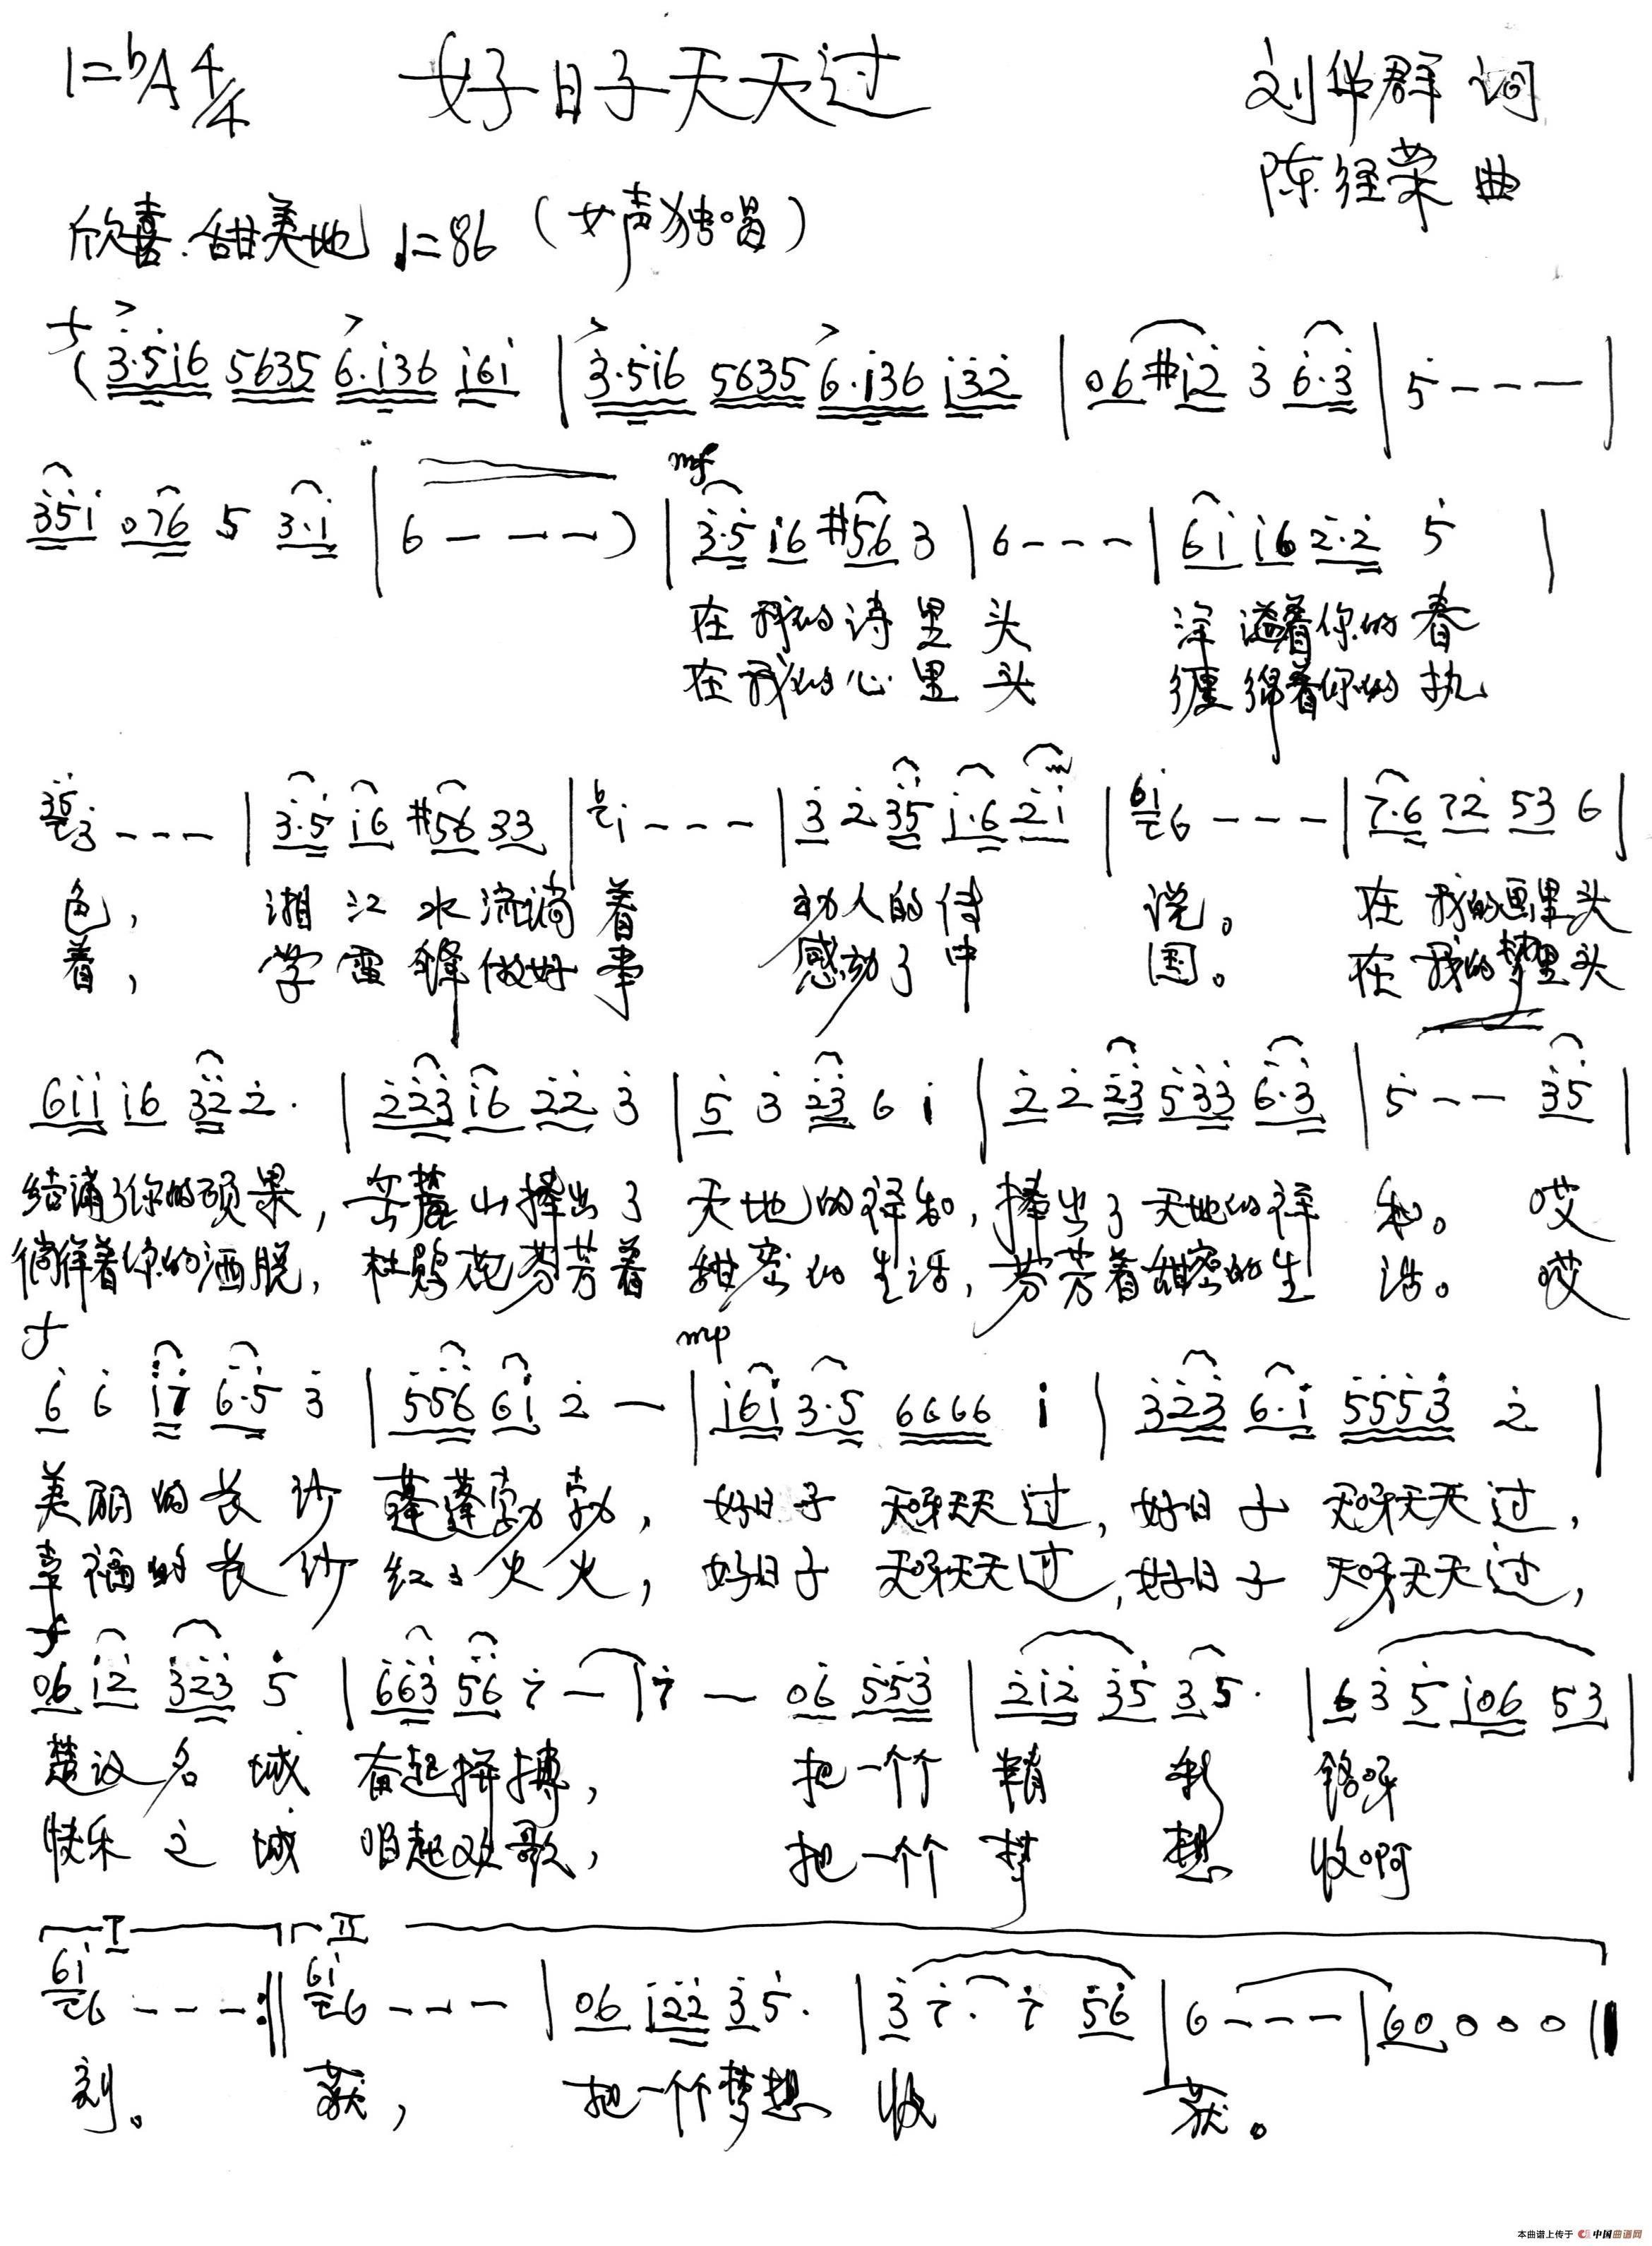 1=bA 4/4 好日子天天过 刘华群 词
陈经荣 曲
欣喜.甜美地 ♩=86 (女声独唱)
f
(3·5i6 5635 6·i36 i6i | 3·5i6 5635 6·i36 i32 | 06 #i2 3 6·3 | 5 - - - |
mf
35i 076 5 3·i | 6 - - - ) | 3·5 i6 #56 3 | 6 - - - | 6i i6 2·2 5 |
在我的诗里头 洋溢着你的春
在我的心里头 缠绵着你的执
35 3 - - - | 3·5 i6 #56 33 | 6 i - - - | 3 2 35 i·6 2i | 6i 6 - - - | 7·6 72 53 6 |
色, 湘江水流淌着 动人的传 说。 在我的画里头
着, 学雷锋做好事 感动了中 国。 在我的梦里头
6ii i6 32 2· | 223 i6 22 3 | 5 3 23 6 i | 2 2 23 533 6·3 | 5 - - 35 |
结满了你的硕果, 岳麓山捧出了 天地的祥和, 捧出了天地的祥 和。 哎
徜徉着你的洒脱, 杜鹃花芬芳着 甜蜜的生活, 芬芳着甜蜜的生 活。 哎
f mp
6 6 i7 6·5 3 | 556 6i 2 - | i6i 3·5 6666 i | 323 6·i 5553 2 |
美丽的长沙 蓬蓬勃勃, 好日子 天呀天天过, 好日子 天呀天天过,
幸福的长沙 红红火火, 好日子 天呀天天过, 好日子 天呀天天过,
f
06 i2 323 5 | 663 56 7 - | 7 - 06 553 | 2i2 35 35· | 63 5 i06 53 |
楚汉名城 奋起拼搏, 把一个个 精 彩 铭呀
快乐之城 唱起欢歌, 把一个个 梦 想 收啊
I II
6i 6 - - - :|| 6i 6 - - - | 06 i22 35· | 3 7· 7 56 | 6 - - - | 60 0 0 0 ||
刻。 获, 把一个个梦想 收 获。
本曲谱上传于 中国曲谱网